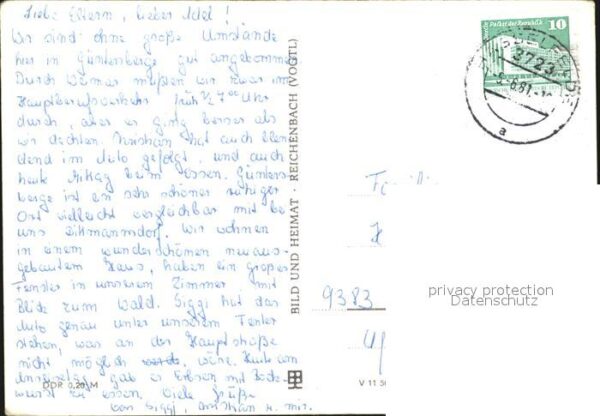 Liebe Eltern, lieber Adel!
Wir sind ohne große Umstände
hier in Güntersberge gut angekommen.
Durch mußten wir zwar im
Hauptberufsverkehr früh ½ 7 00 Uhr
durch, aber es ging besser als
wir dachten. hat auch
dend im Auto gefolgt, und auch
heute Mittag beim essen. Günters-
berge ist ein sehr schöner ruhiger
Ort vielleicht vergleichbar mit bei
uns Dittmannsdorf. Wir wohnen
in einem wunderschönen neuaus-
gebautem Haus, haben ein großes
Fenster in unserem Zimmer mit
Blick zum Wald. Siggi hat das
Auto genau unter unserem Fenster
stehen, was an der Hauptstraße
nicht möglich wäre. Heute am
Anreisetag gab es Erbsen mit Bock-
wurst zu essen. Viele Grüße
von Siggi, u. mir.
DDR 0,20 M
BILD UND HEIMAT · REICHENBACH (VOGTL)
V 11 50
Berlin, Palast der Republik
10
3723
-5.-6.81.-
a
9383
privacy protection
Datenschutz